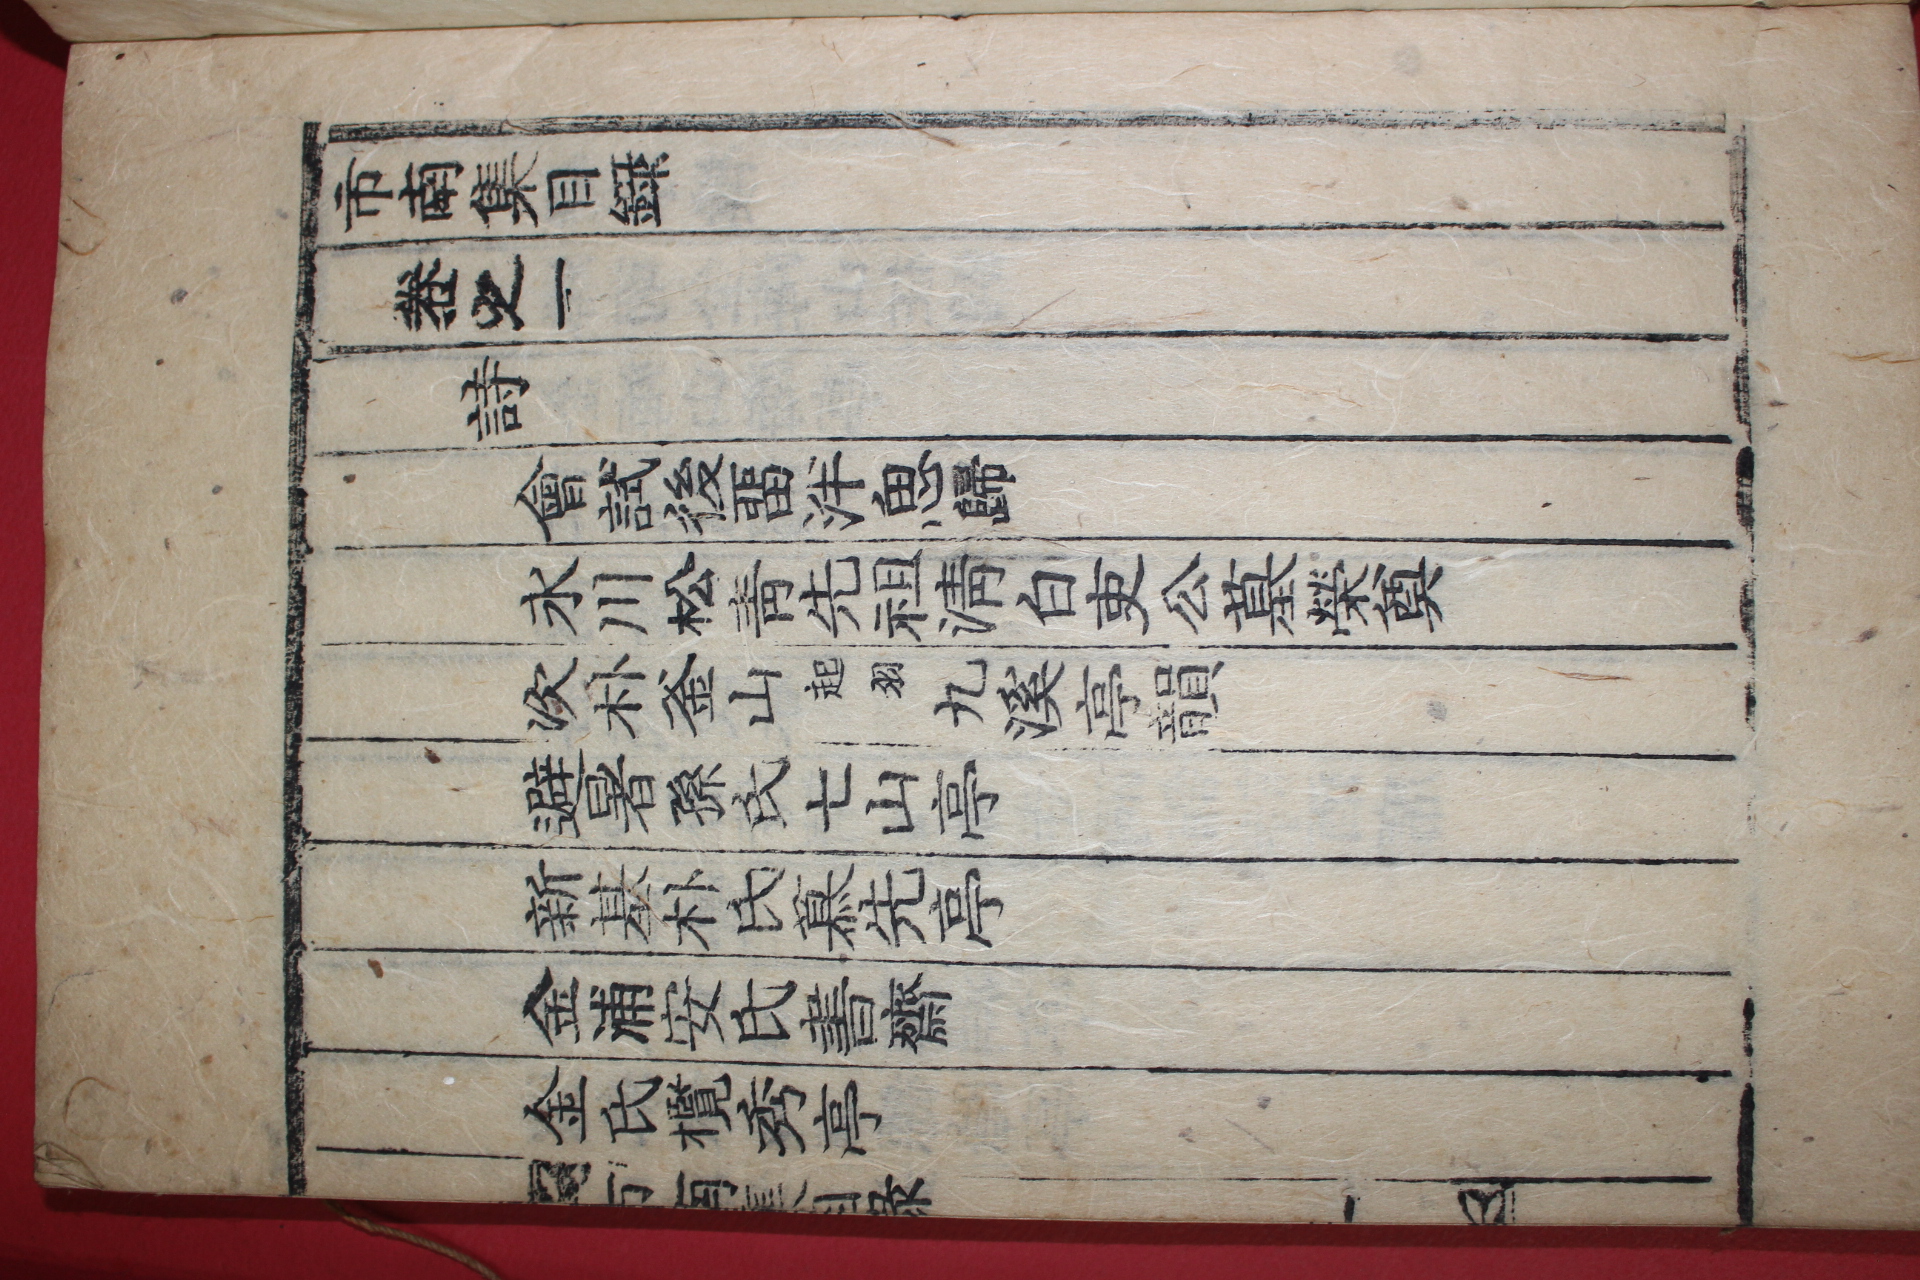 市南集目錄
卷之一
詩
會試後留泮思歸
永川松靑先祖淸白吏公墓榮奠
次朴釜山起羽九溪亭韻
避暑孫氏七山亭
新基朴氏慕先亭
金浦安氏書齋
金氏攬秀亭
市南集目錄 一